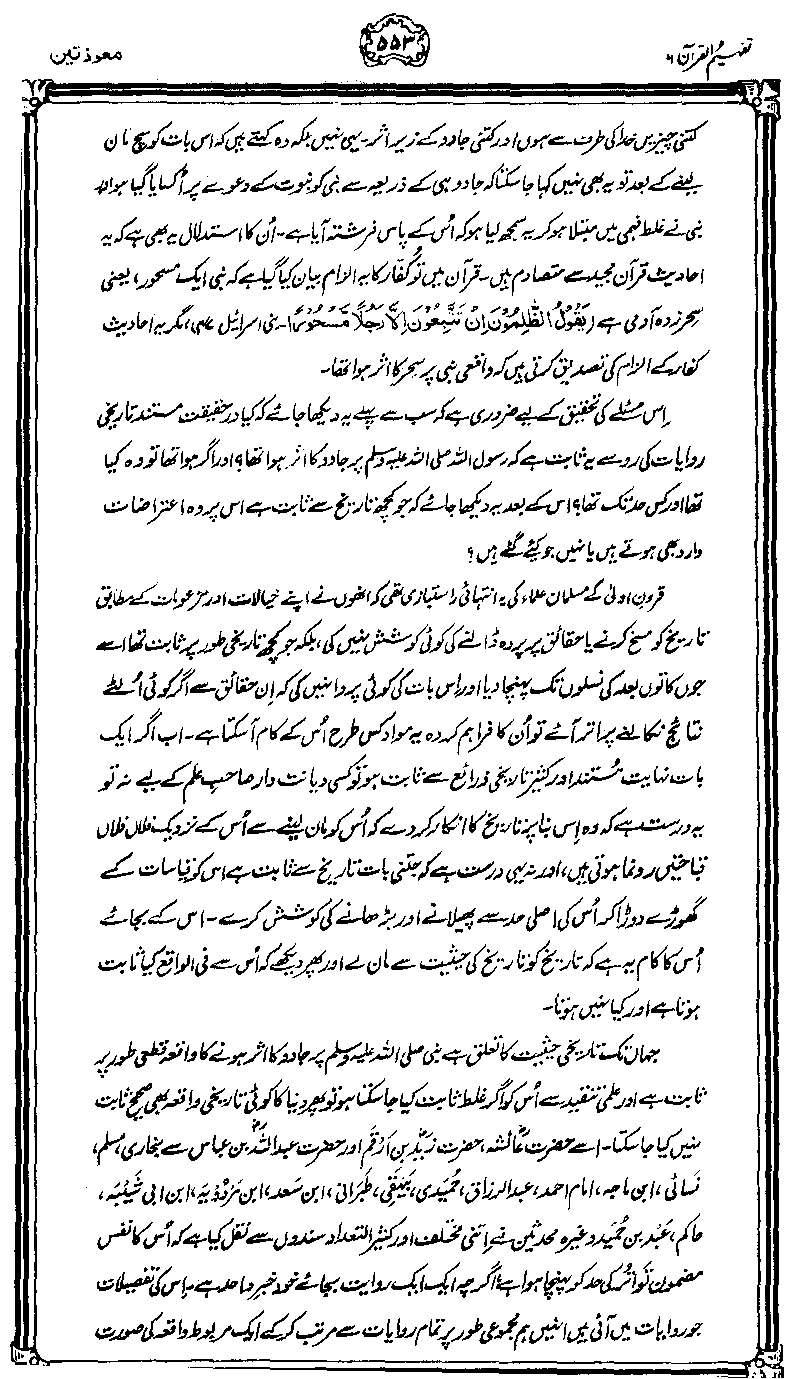 تفہیم القرآن ۶
۵۵۳
معوذتین
کتنی چیزیں خدا کی طرف سے ہوں اور کتنی جادو کے زیر اثر۔ یہی نہیں بلکہ وہ کہتے ہیں کہ اس بات کو سچ مان
لینے کے بعد تو یہ بھی نہیں کہا جا سکتا کہ جادو ہی کے ذریعہ سے نبی کو نبوت کے دعوے پر اُکسایا گیا ہو اور
نبی نے غلط فہمی میں مبتلا ہو کر یہ سمجھ لیا ہو کہ اُس کے پاس فرشتہ آیا ہے۔ اُن کا استدلال یہ بھی ہے کہ یہ
احادیث قرآن مجید سے متصادم ہیں۔ قرآن میں تو کفار کا یہ الزام بیان کیا گیا ہے کہ نبی ایک مسحور، یعنی
سحر زدہ آدمی ہے (یَقُوْلُ الظّٰلِمُوْنَ اِنْ تَتَّبِعُوْنَ اِلَّا رَجُلًا مَّسْحُوْرًا۔ بنی اسرائیل ۴۷)، مگر یہ احادیث
کفار کے الزام کی تصدیق کرتی ہیں کہ واقعی نبی پر سحر کا اثر ہوا تھا۔
اِس مسئلے کی تحقیق کے لیے ضروری ہے کہ سب سے پہلے یہ دیکھا جائے کہ کیا درحقیقت مستند تاریخی
روایات کی رو سے یہ ثابت ہے کہ رسول اللہ صلی اللہ علیہ وسلم پر جادو کا اثر ہوا تھا؟ اور اگر ہوا تھا تو وہ کیا
تھا اور کس حد تک تھا؟ اس کے بعد یہ دیکھا جائے کہ جو کچھ تاریخ سے ثابت ہے اس پر وہ اعتراضات
وارد بھی ہوتے ہیں یا نہیں جو کیے گئے ہیں؟
قرون اولیٰ کے مسلمان علماء کی یہ انتہائی راستبازی تھی کہ انھوں نے اپنے خیالات اور مزعومات کے مطابق
تاریخ کو مسخ کرنے یا حقائق پر پردہ ڈالنے کی کوئی کوشش نہیں کی، بلکہ جو کچھ تاریخی طور پر ثابت تھا اسے
جوں کا توں بعد کی نسلوں تک پہنچا دیا اور اِس بات کی کوئی پروا نہیں کی کہ اِن حقائق سے اگر کوئی اُلٹے
نتائج نکالنے پر اتر آئے تو اُن کا فراہم کردہ یہ مواد کس طرح اُس کے کام آ سکتا ہے۔ اب اگر ایک
بات نہایت مُستند اور کثیر تاریخی ذرائع سے ثابت ہو تو کسی دیانت دار صاحبِ علم کے لیے نہ تو
یہ درست ہے کہ وہ اِس بنا پر تاریخ کا انکار کر دے کہ اُس کو مان لینے سے اُس کے نزدیک فلاں فلاں
قباحتیں رونما ہوتی ہیں، اور نہ یہی درست ہے کہ جتنی بات تاریخ سے ثابت ہے اس کو قیاسات کے
گھوڑے دوڑا کر اُس کی اصلی حد سے پھیلانے اور بڑھانے کی کوشش کرے۔ اس کے بجائے
اُس کا کام یہ ہے کہ تاریخ کو تاریخ کی حیثیت سے مان لے اور پھر دیکھے کہ اُس سے فی الواقع کیا ثابت
ہوتا ہے اور کیا نہیں ہوتا۔
جہاں تک تاریخی حیثیت کا تعلق ہے نبی صلی اللہ علیہ وسلم پر جادو کا اثر ہونے کا واقعہ قطعی طور پر
ثابت ہے اور علمی تنقید سے اُس کو اگر غلط ثابت کیا جا سکتا ہو تو پھر دنیا کا کوئی تاریخی واقعہ بھی صحیح ثابت
نہیں کیا جا سکتا۔ اسے حضرت عائشہؓ، حضرت زیدؓ بن اَرْقم اور حضرت عبداللہؓ بن عباس سے بخاری، مسلم،
نسائی، ابن ماجہ، امام احمد، عبدالرزاق، حُمَیدی، بَیْہَقِی، طَبَرانی، ابن سَعد، ابن مَرْدُوْیَہ، ابن ابی شَیْبَہ،
حاکم، عَبْد بن حُمَید وغیرہ محدثین نے اِتنی مختلف اور کثیر التعداد سندوں سے نقل کیا ہے کہ اُس کا نفس
مضمون تَواتُر کی حد کو پہنچا ہوا ہے، اگرچہ ایک ایک روایت بجائے خود خبرِ واحد ہے۔ اِس کی تفصیلات
جو روایات میں آئی ہیں انہیں ہم مجموعی طور پر تمام روایات سے مرتب کر کے ایک مربوط واقعہ کی صورت